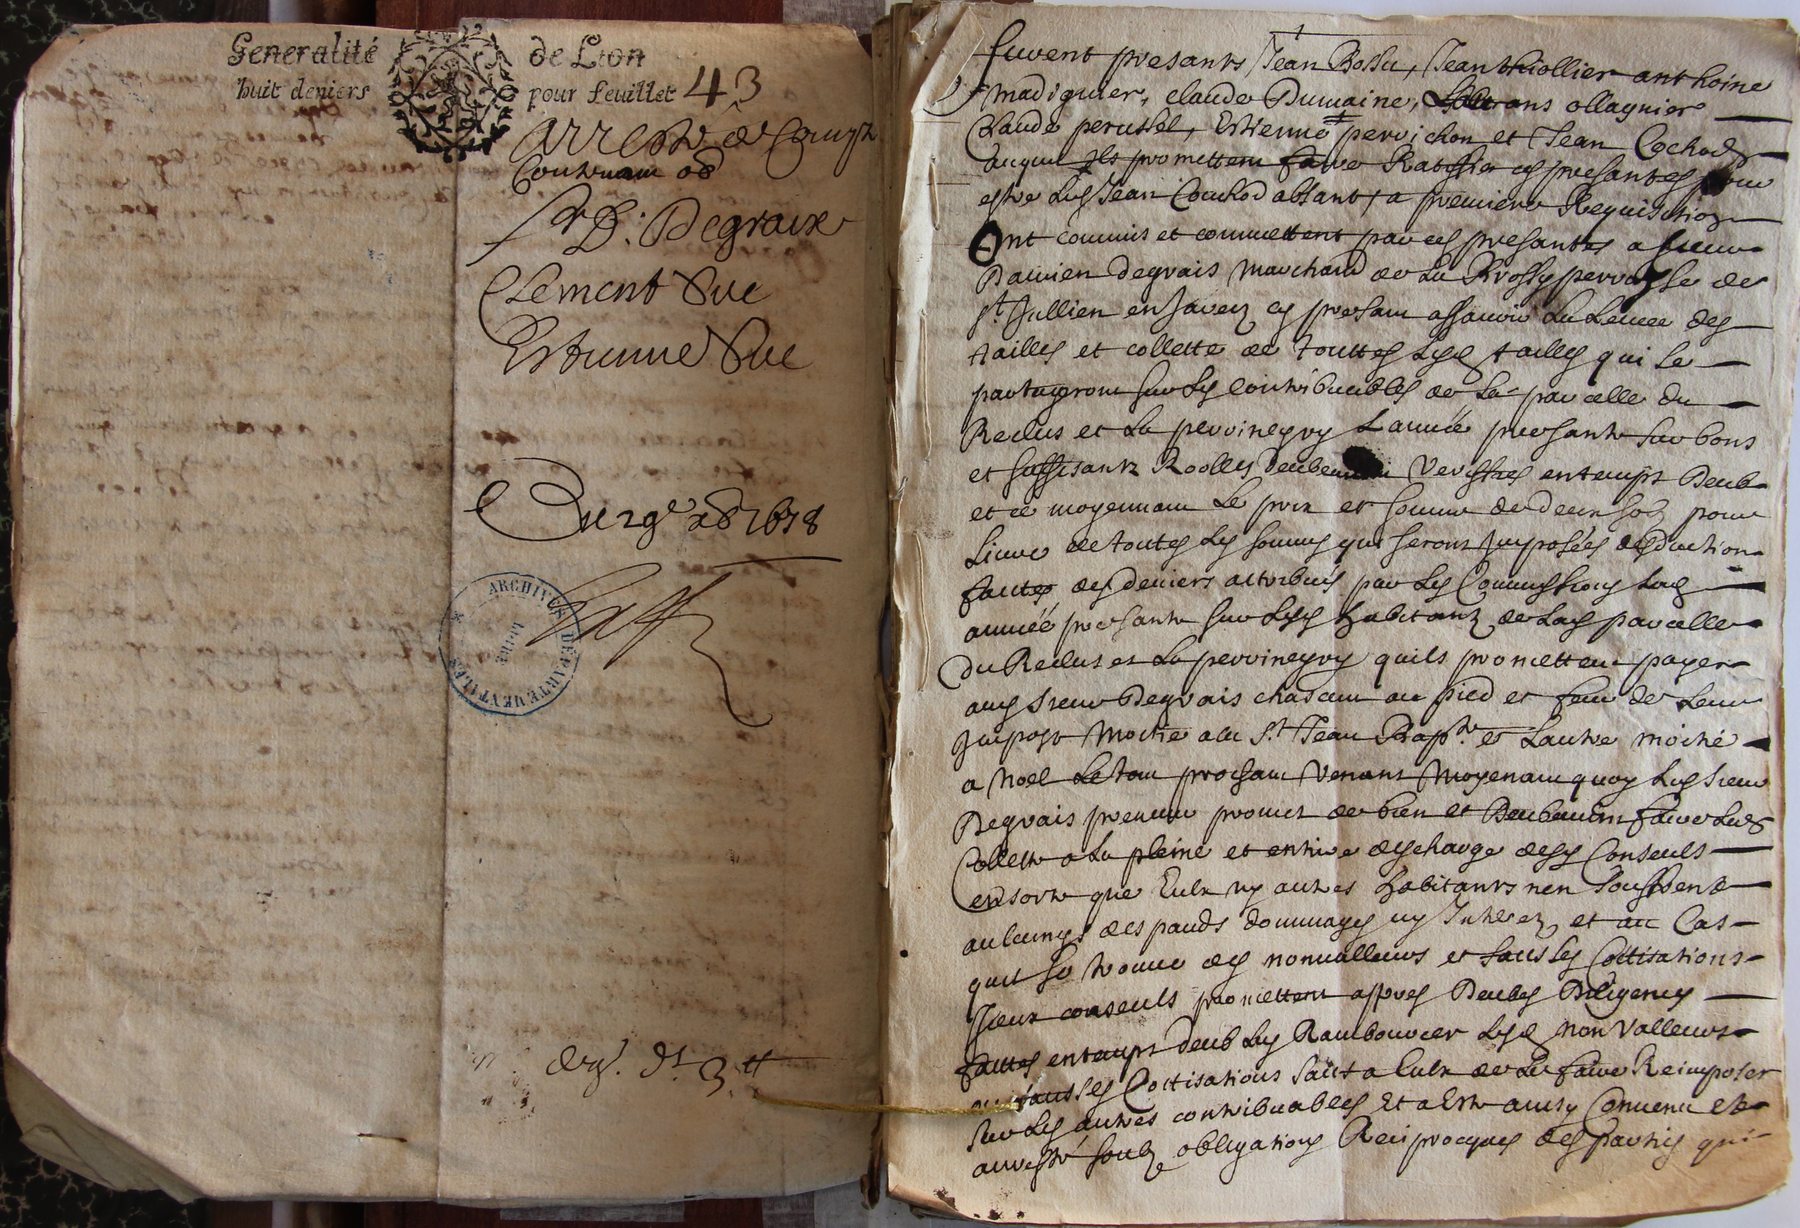 Generalité de Lion
huit deniers pour feuillet 43
Arreste de Compte
Contenant od
Sr D. Degraix
Clement Sue
Estienne Sue
Du 29e 1678
ARCHIVES DEPARTEMENTALES
LOIRE
furent presants Jean Bossu, Jean thiollier anthoine
Madignier, claude Dumaine, ollagnier
Claude perussel, Estienne pervichon et Jean Cochod
auquel Ils promettent faire Ratiffier ces presantes
estre Jean Couchod absant a premiere Requisition
Ont commis et commettent par ces presantes a sieur
Damien degrais marchand de La parroisse de
st Jullien en Jarez cy presant assavoir La Levee des
tailles et collette de touttes tailles qui se
partageront sur les contribuables de la parcelle du
Reclus et La pervinegry Lannée presante sur bons
et suffisants Roolles verifies en temps Deub
et ce moyennant Le prix et somme de deux solz pour
Livre de toutes les sommes qui seront Imposées deduction
faites des deniers attribués par les Commissions
année presante sur habitantz de parcelle
du Reclus et La pervinegry quils promettent payer
sieur Degrais chascun au pied et feur de Leur
Impost Moitié a la St Jean Bapte et Lautre moitié
a Noel Le tout prochain venant Moyenant quoy sieur
Degrais promet de bien et Deubement faire
Collette a La pleine et entiere descharge Conseuls
en sorte que Eulx ny autres habitants nen souffrent
aulcungs despands dommages ny Interez et au Cas
quil se trouve des nonvalleurs et fausses Cottisations
sieurs conseuls promettent appres Deubes Diligences
faittes en temps deub Luy Rambourcer non valleurs
fausses Cottisations sauf a Eulx de Le faire Reimposer
sur les autres contribuables Et a Esté aussy Convenu et
arresté soubz obligations Reciprocques des parties qui